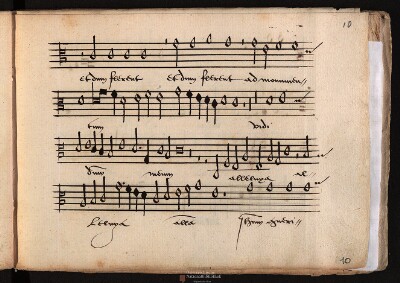 10
et dum flerent et dum flerent ad monumen
tum vidi
dnm meum alleluya al
leluya alla
10